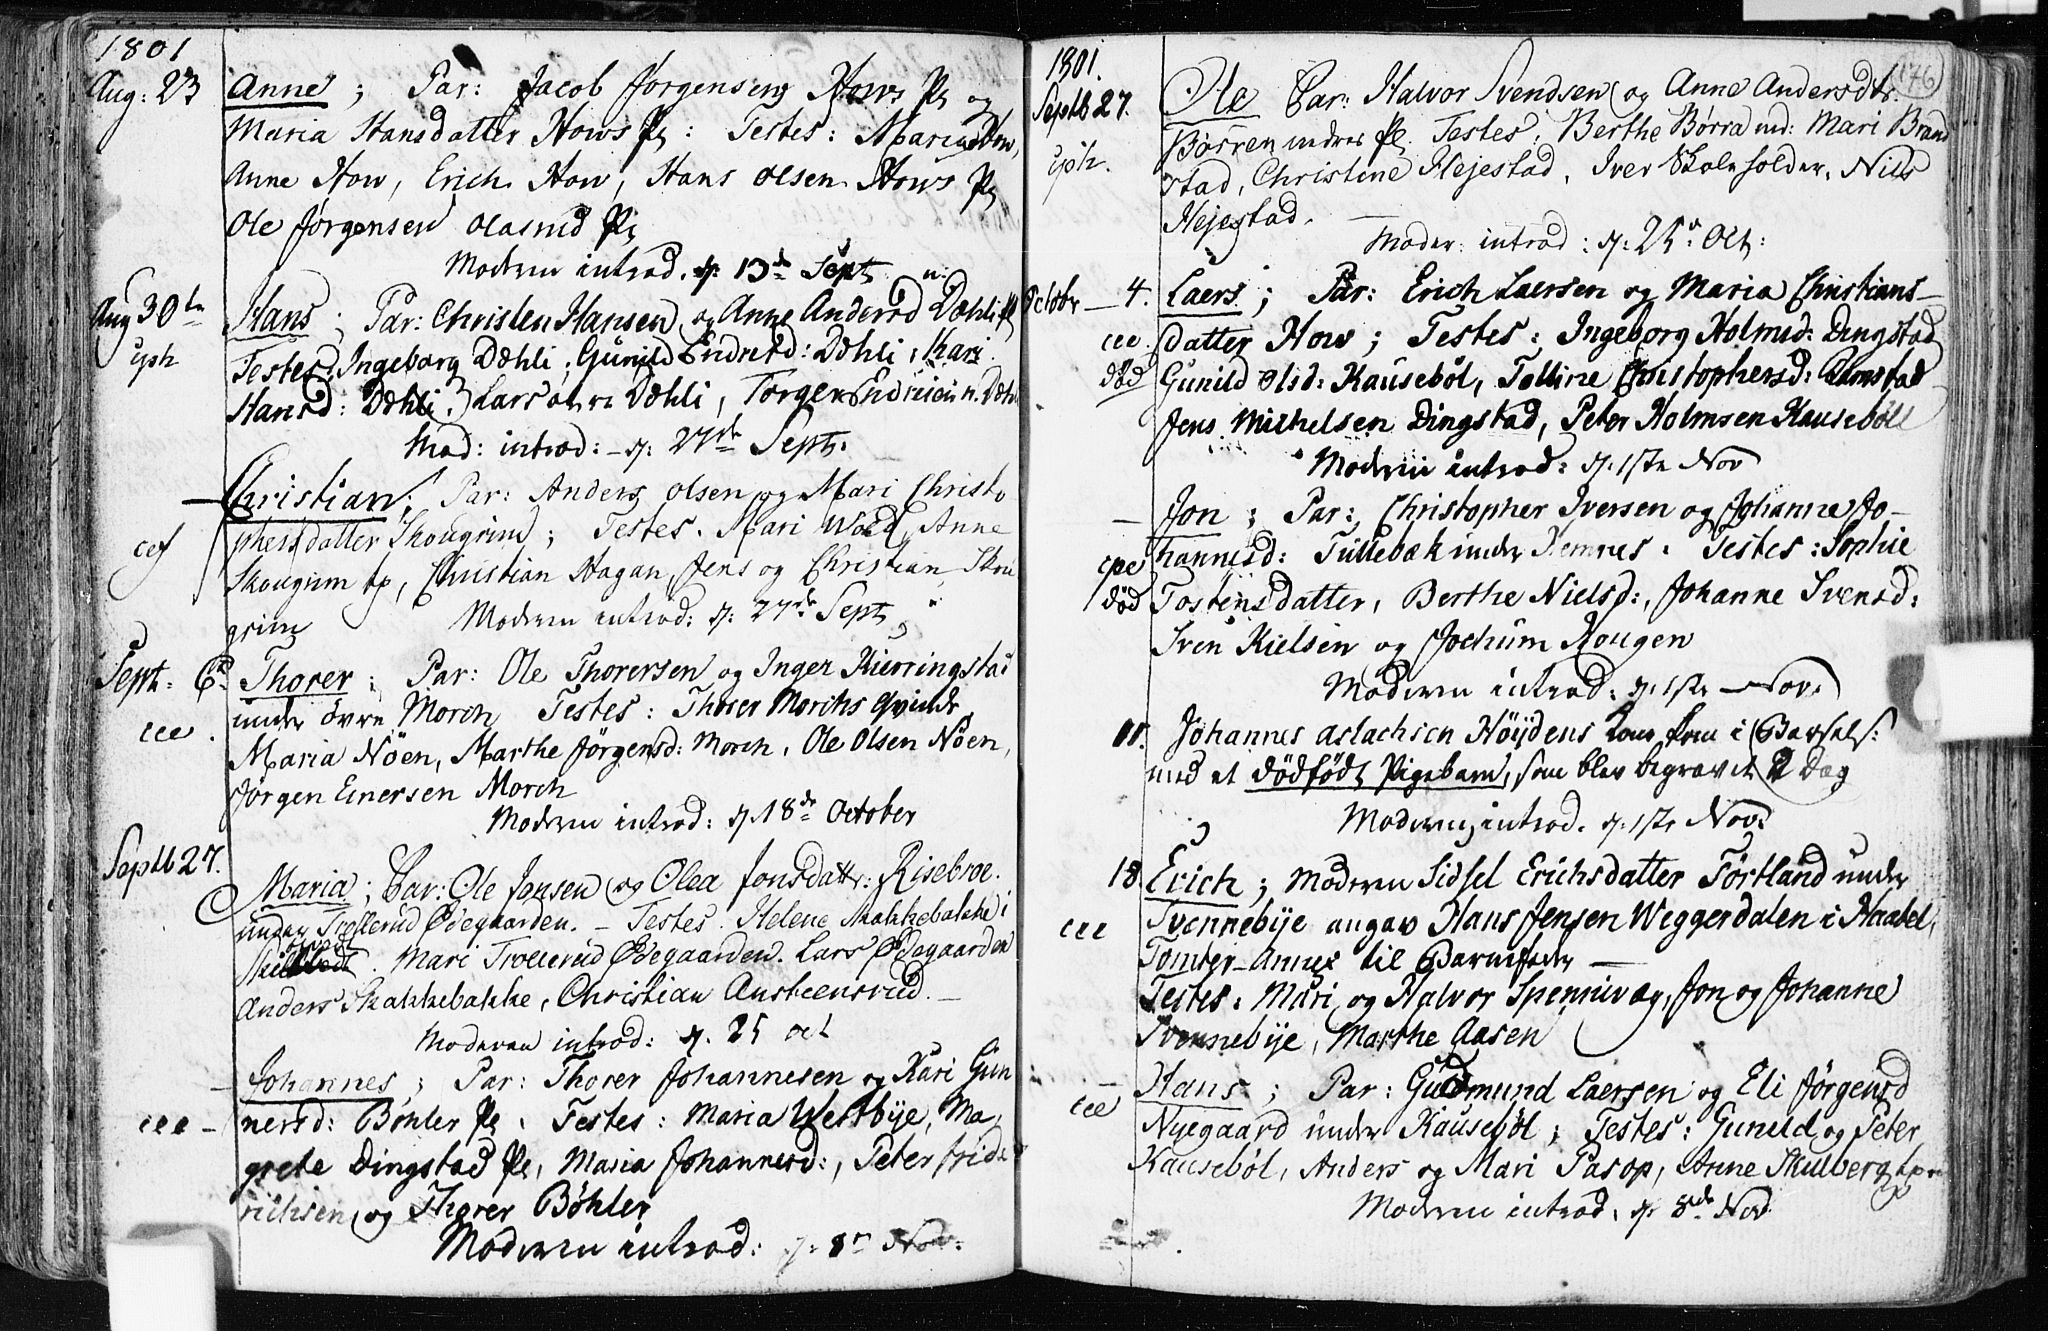 1801
Aug: 23 Anne; Par: Jacob Jørgensen Hows Pl og
Maria Hansdatter Hows Pl: Testes: Maria How,
Anne How, Erich How, Hans Olsen Hows Pl
Ole Jørgensen Olasrud Pl
Moderen introd. d: 13de Sept
Aug 30te Hans; Par: Christen Hansen og Anne Andersd Dæhli Pl
Testes: Ingeborg Dæhli, Gunild Endresd: Dæhli, Kari
Hansd: Dæhli, Lars Dæhli, Torger Dæhli
Mod: introd: d: 27de Sept.
Christian; Par: Anders Olsen og Mari Christo
phersdatter Skougrim; Testes. Mari Anne
Skougrim, Christian Hagan, Jens og Christian Skou
grim
Moderen introd: d: 27de Sept
Sept: 6te Thorer; Par: Ole Thorersen og Inger Kierringstad
cee. under övre Morch Testes: Thorer Morchs Qvinde
Maria Nöen, Marthe Jörgensd: Morch, Ole Olsen Nöen,
Jörgen Einersen Morch
Moderen introd: d. 18de October
Septb 27. Maria; Par: Ole Jensen og Olea Jonsdattr: Risebroe
under Trollerud Ødegaarden. – Testes. Helene Skakkebakke i
Mari Trollerud Ødegaarden. Lars Ødegaarden
Anders Skakkebakke, Christian Austeensrud. –
Moderen introd: d. 25 Oct
– Johannes; Par: Thorer Johannesen og Kari Gun
cee – nersd: Bøhler Pl. Testes: Maria Westbÿe, Ma
grete Dingstad Pl, Maria Johannesd:, Peter Fride
richsen og Thorer Bøhler
Moderen introd: d: Nov:
176
1801.
Septb 27. Ole Par: Halvor Svendsen og Anne Andersdtr.
Børren under Pl. Testes: Berthe Børra Mari Brand
stad, Christine Hejestad, Iver Skoleholder, Nils
Hejestad.
Moder: introd: d: 25de Oct:
Octobr – 4. Laers; Par: Erich Laersen og Maria Christians–
cee datter How; Testes: Ingeborg Holmsd: Dingstad
død Gunild Olsd: Kausebøl, Tolline Christophersd: Ramstad
Jens Michelsen Dingstad, Peter Holmsen Kausebøll
Moderen introd: d. 1ste Nov
– Jon; Par: Christopher Iversen og Johanne Jo–
hannesd: Tullebæk under Hemnes. Testes: Sophie
død Tostensdatter, Berthe Nielsd:, Johanne Svensd:
Sven Kielsen og Jochum Kougen
Moderen introd: d. 1ste Nov.
11. Johannes Aslachsen Höÿdens kone kom i Barsels:
med et dödfödt Pigebarn, som blev begravet D Dag
Moderen introd. d. 1ste Nov:
18 Erich; Moderen Sidsel Erichsdatter Törtland under
cee Svennebÿe angav Hans Jensen Weggerdalen i Haabel,
Tomter Annex til Barnefader –
Testes: Mari og Halvor Spennivæg, Jon og Johanne
Svennebÿe, Marthe Aasen
– Hans; Par: Gudmund Laersen og Eli Jørgensd
cee Nyegaard under Kausebøl; Testes: Gunild og Peter
Kausebøl, Anders og Mari Pasop, Anne Skulberg
Moderen introd. d. 8de Nov